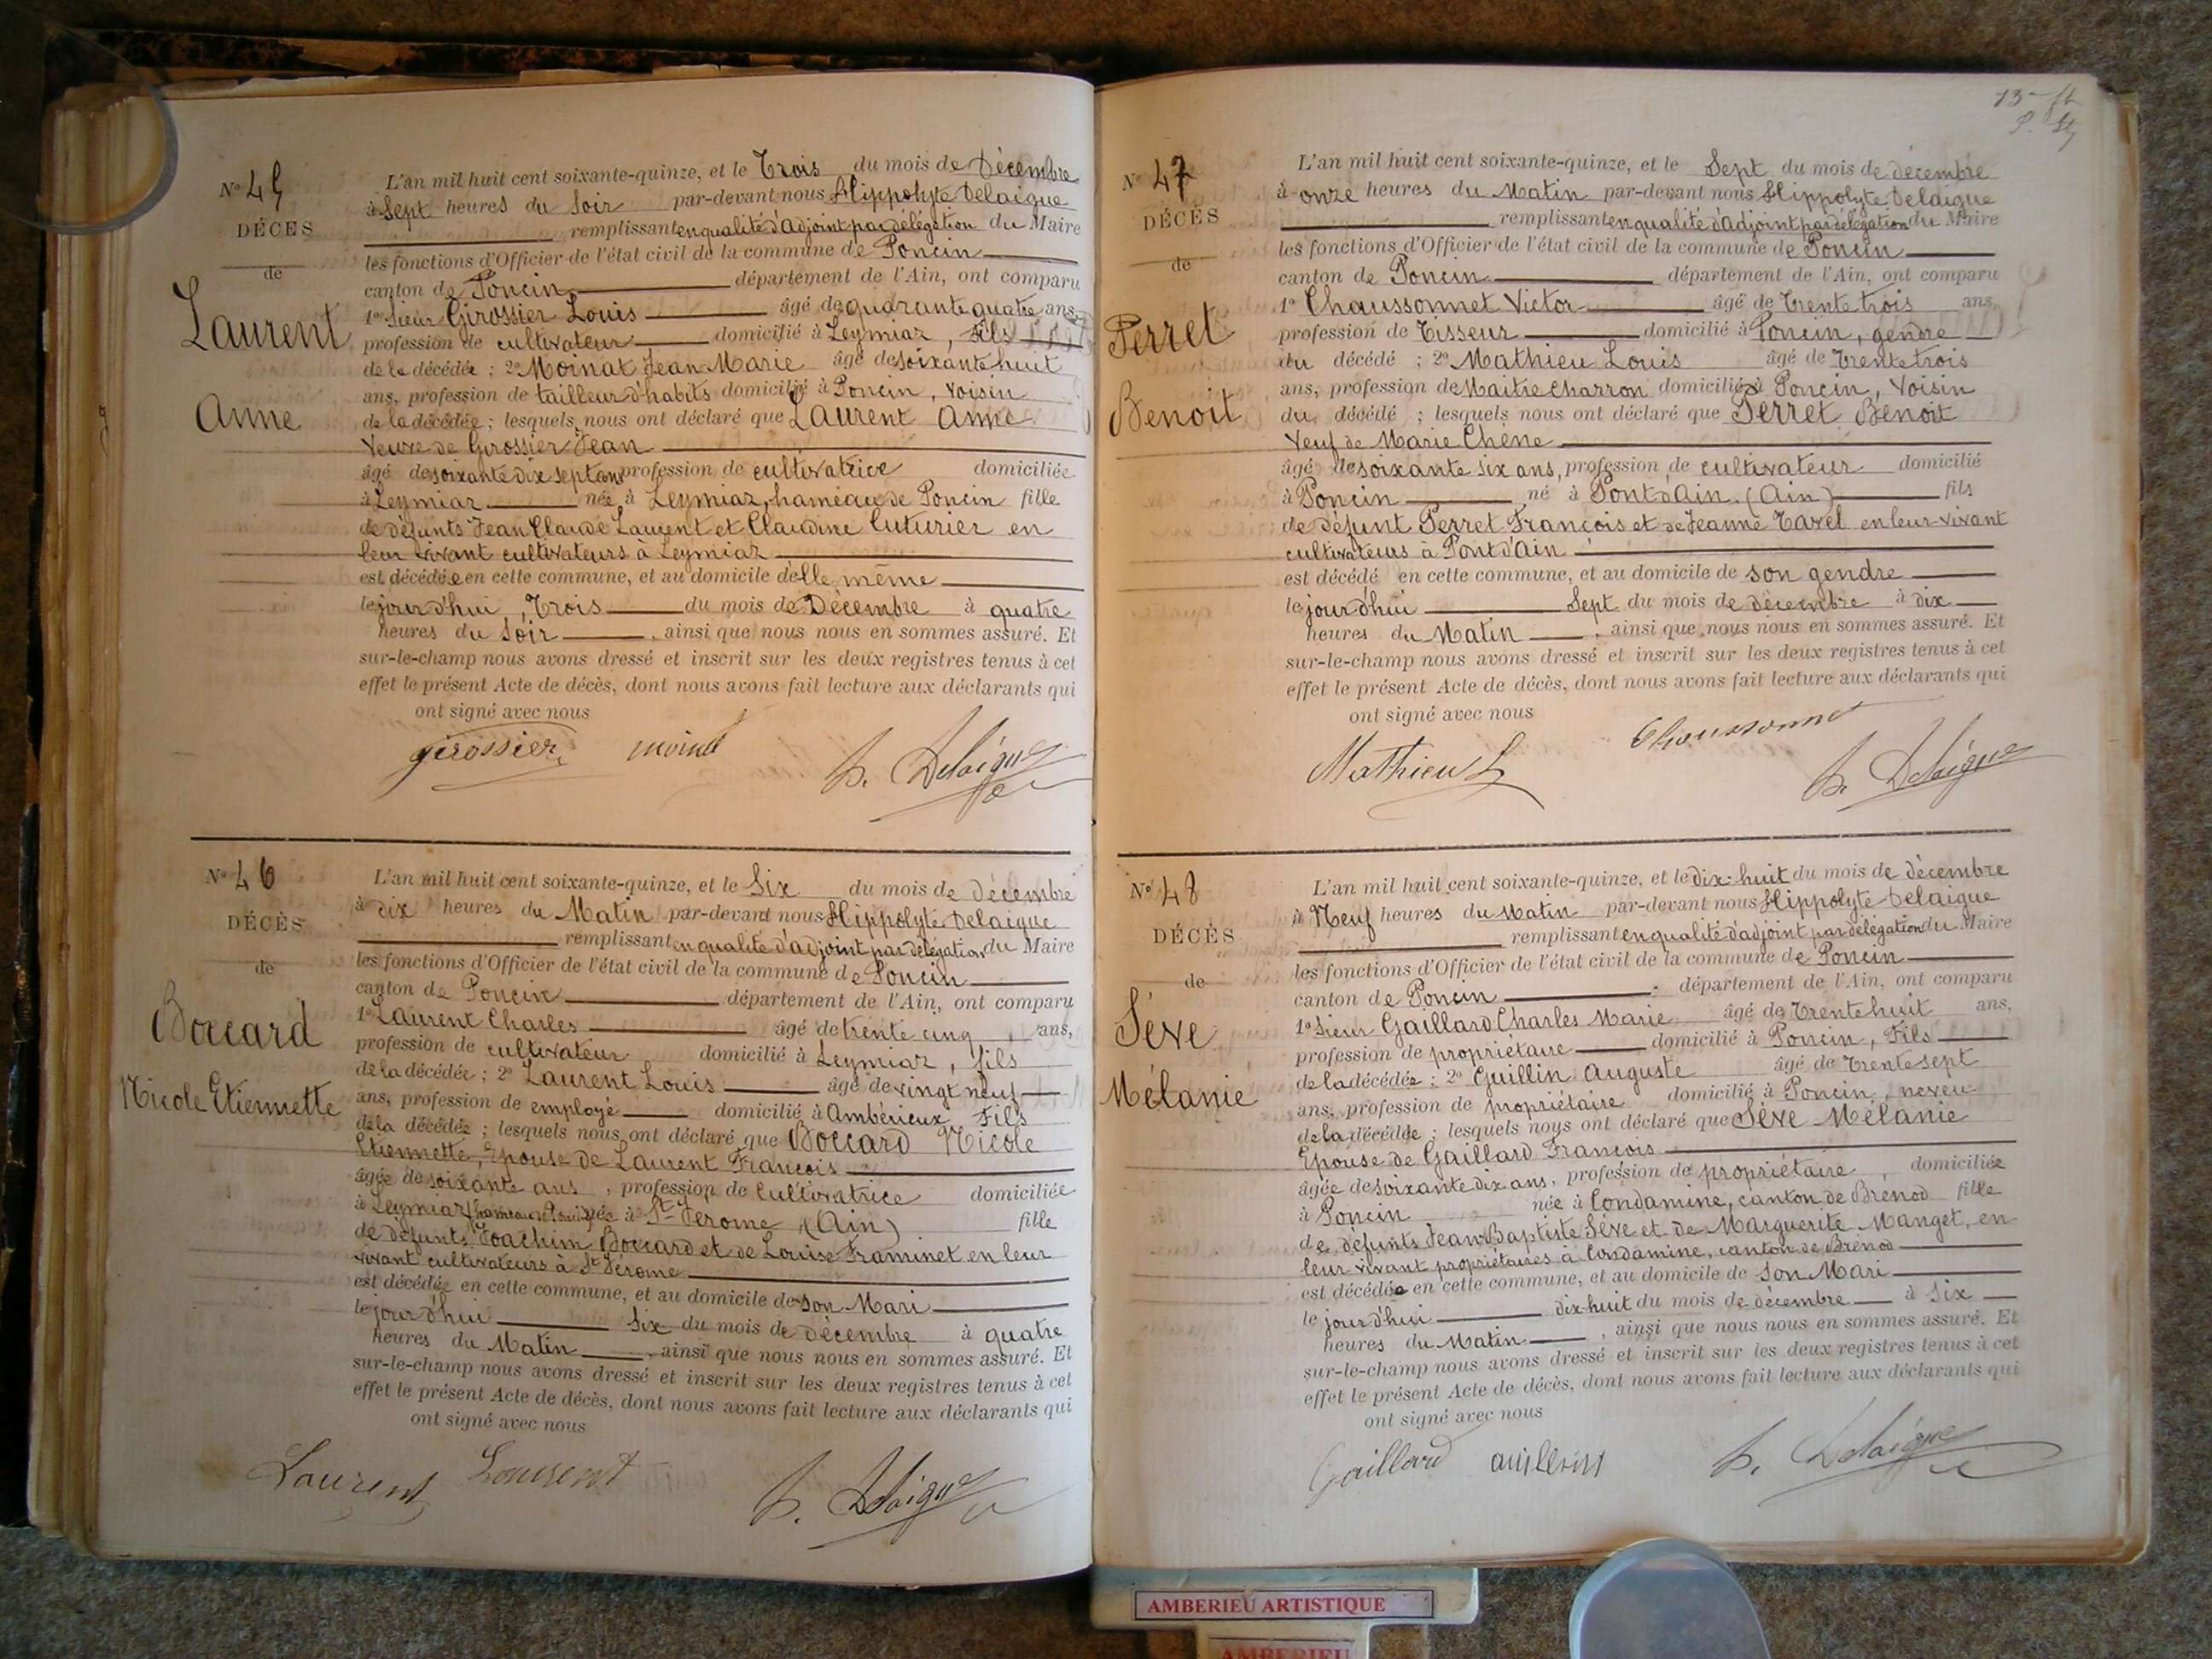 N° 45
DÉCÈS
de
Laurent
Anne
L'an mil huit cent soixante-quinze, et le Trois du mois de Décembre
à Sept heures du Soir par-devant nous Hippolyte Delaigue
remplissant en qualité d'adjoint par délégation du Maire
les fonctions d'Officier de l'état civil de la commune de Poncin
canton de Poncin département de l'Ain, ont comparu
1° Sieur Girossier Louis âgé de quarante quatre ans,
profession de cultivateur domicilié à Leymiaz, Fils
de la décédée ; 2° Moinat Jean Marie âgé de soixante huit
ans, profession de tailleur d'habits domicilié à Poncin, Voisin
de la décédée ; lesquels nous ont déclaré que Laurent Anne
Veuve de Girossier Jean
âgé de soixante dix sept ans profession de cultivatrice domiciliée
à Leymiaz née à Leymiaz, hameau de Poncin fille
de défunts Jean Claude Laurent et Claudine Cuturier en
leur vivant cultivateurs à Leymiaz
est décédée en cette commune, et au domicile d'elle même
le jour d'hui, Trois du mois de Décembre à quatre
heures du Soir, ainsi que nous nous en sommes assuré. Et
sur-le-champ nous avons dressé et inscrit sur les deux registres tenus à cet
effet le présent Acte de décès, dont nous avons fait lecture aux déclarants qui
ont signé avec nous
girossier moinat h. Delaigue
N° 46
DÉCÈS
de
Boccard
Nicole Etiennette
L'an mil huit cent soixante-quinze, et le Six du mois de Décembre
à dix heures du Matin par-devant nous Hippolyte Delaigue
remplissant en qualité d'adjoint par délégation du Maire
les fonctions d'Officier de l'état civil de la commune de Poncin
canton de Poncin département de l'Ain, ont comparu
1° Laurent Charles âgé de trente cinq ans,
profession de cultivateur domicilié à Leymiaz, fils
de la décédée ; 2° Laurent Louis âgé de vingt neuf
ans, profession de employé domicilié à Ambérieux Fils
de la décédée ; lesquels nous ont déclaré que Boccard Nicole
Etiennette, Epouse de Laurent François
âgée de soixante ans, profession de Cultivatrice domiciliée
à Leymiaz hameau de née à St Jerome, (Ain) fille
de défunts Joachim Boccard et de Louise Framinet en leur
vivant cultivateurs à St Jérome
est décédée en cette commune, et au domicile de son Mari
le jour d'hui Six du mois de décembre à quatre
heures du Matin, ainsi que nous nous en sommes assuré. Et
sur-le-champ nous avons dressé et inscrit sur les deux registres tenus à cet
effet le présent Acte de décès, dont nous avons fait lecture aux déclarants qui
ont signé avec nous
Laurent Laurent h. Delaigue
N° 47
DÉCÈS
de
Perret
Benoit
L'an mil huit cent soixante-quinze, et le Sept du mois de décembre
à onze heures du Matin par-devant nous Hippolyte Delaigue
remplissant en qualité d'adjoint par délégation du Maire
les fonctions d'Officier de l'état civil de la commune de Poncin
canton de Poncin département de l'Ain, ont comparu
1° Chaussonnet Victor âgé de Trente trois ans,
profession de Tisseur domicilié à Poncin, gendre
du décédé ; 2° Mathieu Louis âgé de Trente trois
ans, profession de Maitre Charron domicilié à Poncin, Voisin
du décédé ; lesquels nous ont déclaré que Perret Benoit
Veuf de Marie Chêne
âgé de soixante six ans, profession de cultivateur domicilié
à Poncin né à Pont d'Ain (Ain) fils
de défunt Perret François et de Jeanne Tavel en leur vivant
cultivateurs à Pont d'Ain
est décédé en cette commune, et au domicile de son gendre
le jour d'hui Sept du mois de décembre à dix
heures du Matin, ainsi que nous nous en sommes assuré. Et
sur-le-champ nous avons dressé et inscrit sur les deux registres tenus à cet
effet le présent Acte de décès, dont nous avons fait lecture aux déclarants qui
ont signé avec nous
Mathieu L Chaussonnet h. Delaigue
N° 48
DÉCÈS
de
Séve
Mélanie
L'an mil huit cent soixante-quinze, et le dix-huit du mois de décembre
à Neuf heures du Matin par-devant nous Hippolyte Delaigue
remplissant en qualité d'adjoint par délégation du Maire
les fonctions d'Officier de l'état civil de la commune de Poncin
canton de Poncin département de l'Ain, ont comparu
1° Sieur Gaillard Charles Marie âgé de Trente huit ans,
profession de propriétaire domicilié à Poncin, Fils
de la décédée ; 2° Guillin Auguste âgé de Trente sept
ans, profession de propriétaire domicilié à Poncin, neveu
de la décédée ; lesquels nous ont déclaré que Séve Mélanie
Epouse de Gaillard François
âgée de soixante dix ans, profession de propriétaire, domiciliée
à Poncin née à Condamine, canton de Brénod fille
de défunts Jean Baptiste Séve et de Marguerite Manget, en
leur vivant propriétaires à Condamine, canton de Brénod
est décédée en cette commune, et au domicile de son Mari
le jour d'hui dix-huit du mois de décembre à Six
heures du Matin, ainsi que nous nous en sommes assuré. Et
sur-le-champ nous avons dressé et inscrit sur les deux registres tenus à cet
effet le présent Acte de décès, dont nous avons fait lecture aux déclarants qui
ont signé avec nous
Gaillard h. Delaigue
AMBERIEU ARTISTIQUE
AMBERIEU